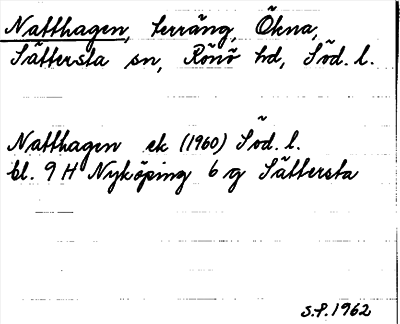 Natthagen, terräng, Ökna,
Sättersta sn, Rönö hd, Söd. l.
Natthagen ek (1960) Söd. l.
bl. 9 H Nyköping 6 g Sättersta
S.P. 1962